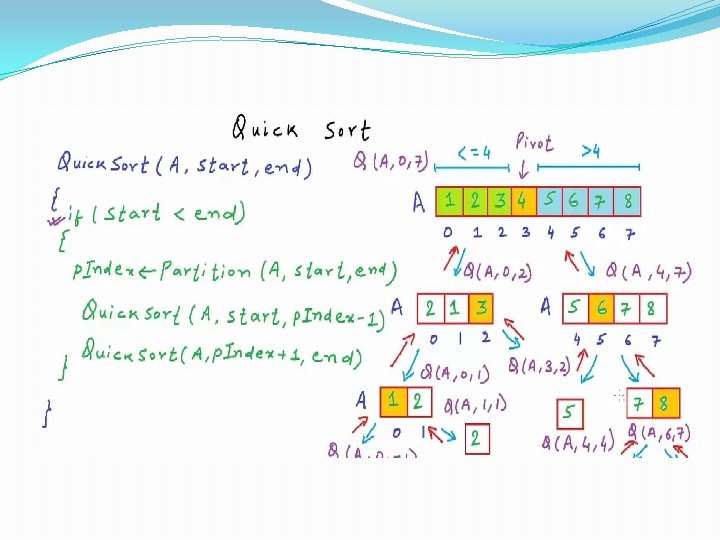 Quick Sort
QuickSort(A, start, end)
{
if (start < end)
{
pIndex ← Partition (A, start, end)
QuickSort (A, start, pIndex-1)
QuickSort(A, pIndex+1, end)
}
}
Q(A,0,7)
<=4
Pivot
>4
A 1 2 3 4 5 6 7 8
0 1 2 3 4 5 6 7
Q(A,0,2)
Q(A,4,7)
A 2 1 3
0 1 2
A 5 6 7 8
4 5 6 7
Q(A,0,1)
Q(A,3,2)
A 1 2
0 1
Q(A,1,1)
2
5
7 8
Q(A,4,4)
Q(A,6,7)
Q(A,0,-1)